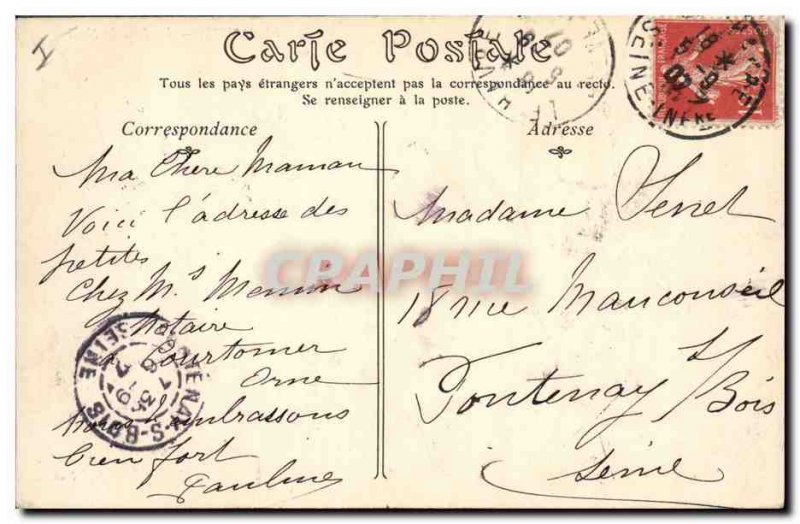 Carte Postale
Tous les pays étrangers n'acceptent pas la correspondance au recto.
Se renseigner à la poste.
Correspondance
Ma Chere Maman
Voici l'adresse des
petites
Chez Mr Mennin
Notaire
à Courtomer
Orne
nous t'embrassons
bien fort
Pauline
Adresse
Madame
18 rue Mauconseil
Fontenay s/ Bois
Seine
CRAPHIL
LE HAVRE
SEINE INFRE
S-BOIS
SEINE